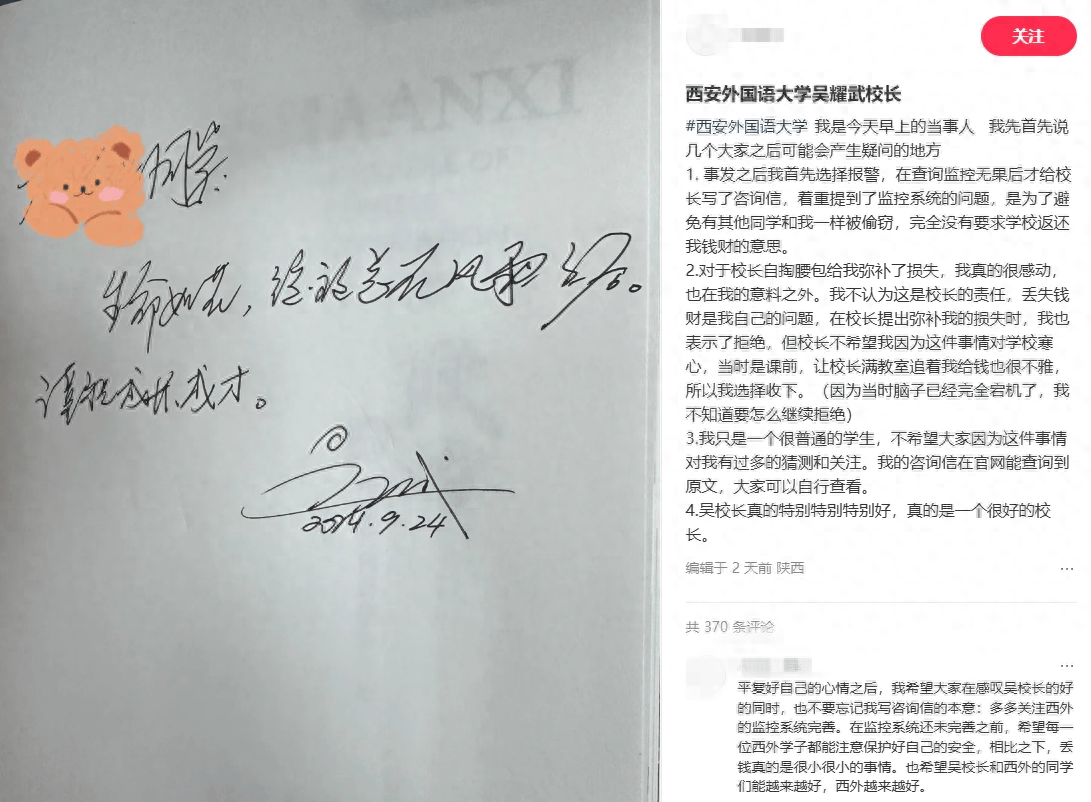 同学：
生命如花，绽放总在风雨之后。
成长、成才。
2024.9.24
关注
西安外国语大学吴耀武校长
#西安外国语大学 我是今天早上的当事人 我先首先说
几个大家之后可能会产生疑问的地方
1. 事发之后我首先选择报警，在查询监控无果后才给校
长写了咨询信，着重提到了监控系统的问题，是为了避
免有其他同学和我一样被偷窃，完全没有要求学校返还
我钱财的意思。
2.对于校长自掏腰包给我弥补了损失，我真的很感动，
也在我的意料之外。我不认为这是校长的责任，丢失钱
财是我自己的问题，在校长提出弥补我的损失时，我也
表示了拒绝。但校长不希望我因为这件事情对学校寒
心，当时是课前，让校长满教室追着我给钱也很不雅，
所以我选择收下。（因为当时脑子已经完全宕机了，我
不知道要怎么继续拒绝）
3.我只是一个很普通的学生，不希望大家因为这件事情
对我有过多的猜测和关注。我的咨询信在官网能查询到
原文，大家可以自行查看。
4.吴校长真的特别特别特别好，真的是一个很好的校
长。
编辑于 2 天前 陕西
共 370 条评论
平复好自己的心情之后，我希望大家在感叹吴校长的好
的同时，也不要忘记我写咨询信的本意：多多关注西外
的监控系统完善。在监控系统还未完善之前，希望每一
位西外学子都能注意保护好自己的安全，相比之下，丢
钱真的是很小很小的事情。也希望吴校长和西外的同学
们能越来越好，西外越来越好。